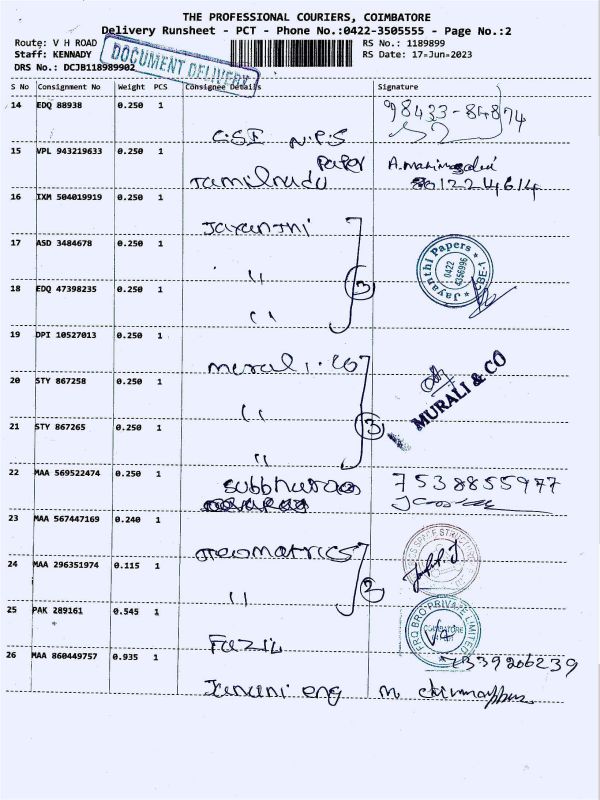 THE PROFESSIONAL COURIERS, COIMBATORE
Delivery Runsheet - PCT - Phone No.:0422-3505555 - Page No.:2
Route: V H ROAD
RS No.: 1189899
Staff: KENNADY
RS Date: 17-Jun-2023
DRS No.: DCJB118989902
DOCUMENT DELIVERY
S No Consignment No Weight PCS Consignee Details Signature
14 EDQ 88938 0.250 1
98433-84874
CSI N.P.S
15 VPL 943219633 0.250 1
Paper
Tamilnadu
8012224614
16 IXM 504019919 0.250 1
Jayanthi
17 ASD 3484678 0.250 1
"
Jayanthi Papers
0422
4356996
CBE-1
18 EDQ 47398235 0.250 1
3
"
19 DPI 10527013 0.250 1
Murali.co
20 STY 867258 0.250 1
"
MURALI & CO
21 STY 867265 0.250 1
3
"
22 MAA 569522474 0.250 1
Subbhurao
7538855977
23 MAA 567447169 0.240 1
24 MAA 296351974 0.115 1
2
"
25 PAK 289161 0.545 1
FRQ BRO PRIVATE LIMITED
COIMBATORE
Fazil
26 MAA 860449757 0.935 1
7339206239
Janani eng